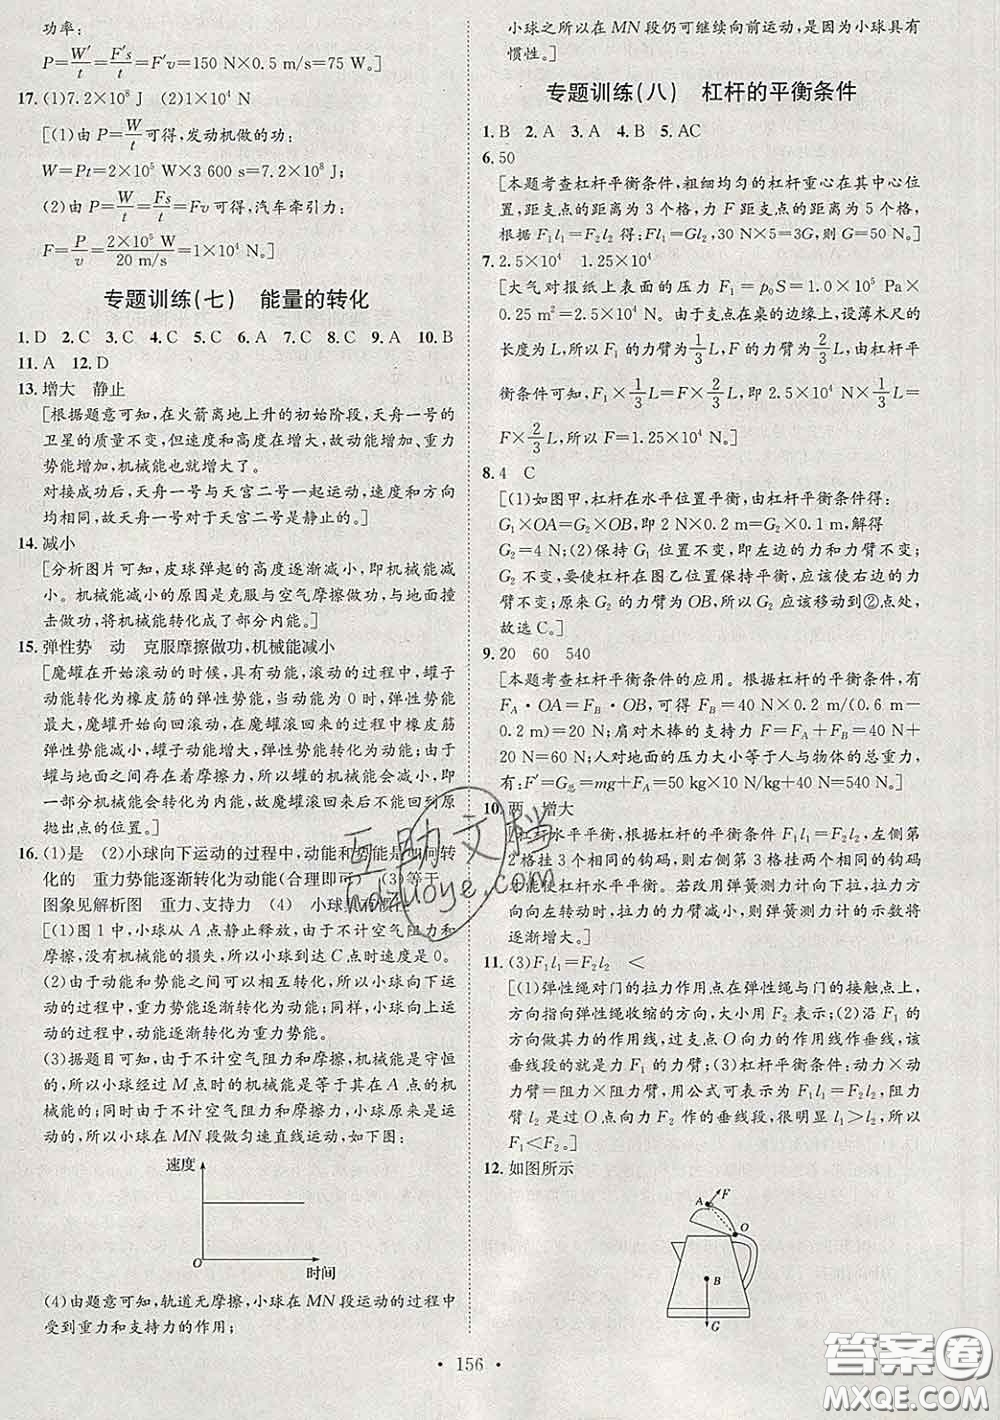 功率:
P=W′/t=F′s/t=F′v=150 N×0.5 m/s=75 W。]
17. (1)7.2×10⁸ J (2)1×10⁴ N
[(1)由 P=W/t 可得,发动机做的功:
W=Pt=2×10⁵ W×3 600 s=7.2×10⁸ J;
(2)由 P=W/t=Fs/t=Fv可得,汽车牵引力:
F=P/v=2×10⁵ W/20 m/s=1×10⁴ N。]
专题训练(七) 能量的转化
1. D 2. C 3. C 4. C 5. C 6. A 7. C 8. C 9. A 10. B
11. A 12. D
13. 增大 静止
[根据题意可知,在火箭离地上升的初始阶段,天舟一号的
卫星的质量不变,但速度和高度在增大,故动能增加、重力
势能增加,机械能也就增大了。
对接成功后,天舟一号与天宫二号一起运动,速度和方向
均相同,故天舟一号对于天宫二号是静止的。]
14. 减小
[分析图片可知,皮球弹起的高度逐渐减小,即机械能减
小。机械能减小的原因是克服与空气摩擦做功,与地面撞
击做功,将机械能转化成了部分内能。]
15. 弹性势 动 克服摩擦做功,机械能减小
[魔罐在开始滚动的时候,具有动能,滚动的过程中,罐子
动能转化为橡皮筋的弹性势能,当动能为0时,弹性势能
最大,魔罐开始向回滚动,在魔罐滚回来的过程中橡皮筋
弹性势能减小,罐子动能增大,弹性势能转化为动能;由于
罐与地面之间存在着摩擦力,会使罐的机械能减小,即
一部分机械能转化为内能,故魔罐滚回来后不能回到原
抛出点的位置。]
16. (1)是 (2)小球向下运动的过程中,动能和势能是如何转
化的 重力势能逐渐转化为动能(合理即可) (3)等于
图象见解析图 重力、支持力 (4) 小球具有惯性
[(1)图1中,小球从A点静止释放,由于不计空气阻力和
摩擦,没有机械能的损失,所以小球到达C点时速度是0。
(2)由于动能和势能之间可以相互转化,所以小球向下运
动过程中,重力势能逐渐转化为动能;同样,小球向上运
动过程中,动能逐渐转化为重力势能。
(3)据题目可知,由于不计空气阻力和摩擦,机械能是守恒
的,所以小球经过M点时的机械能是等于其在A点的机
械能的;同时由于不计空气阻力和摩擦,小球原来是运动
的,所以小球在MN段做匀速直线运动,如下图:
速度
O
时间
(4)由题意可知,轨道无摩擦,小球在MN段运动的过程中
受到重力和支持力的作用;
小球之所以在MN段仍可继续向前运动,是因为小球具有
惯性。]
专题训练(八) 杠杆的平衡条件
1. B 2. A 3. A 4. B 5. AC
6. 50
[本题考查杠杆平衡条件,粗细均匀的杠杆重心在其中心位
置,距支点的距离为3个格,力F距支点的距离为5个格,
根据F₁l₁=F₂l₂得:Fl₁=Gl₂,30 N×5=3G,则G=50 N。]
7. 2.5×10⁴ 1.25×10⁴
[大气对报纸上表面的压力 F₁=p₀S=1.0×10⁵ Pa×
0.25 m²=2.5×10⁴ N。由于支点在桌的边缘上,设薄木尺的
长度为L,所以F₁的力臂为1/3L,F的力臂为2/3L,由杠杆平
衡条件可知,F₁×1/3L=F×2/3L,即 2.5×10⁴ N×1/3L=
F×2/3L,所以F=1.25×10⁴ N。]
8. 4 C
[(1)如图甲,杠杆在水平位置平衡,由杠杆平衡条件得:
G₁×OA=G₂×OB,即 2 N×0.2 m=G₂×0.1 m,解得
G₂=4 N;(2)保持 G₁ 位置不变,即左边的力和力臂不变;
G₂ 不变,要使杠杆在图乙位置保持平衡,应该使右边的力
臂不变;原来G₂的力臂为OB,所以G₂应该移动到②点处,
故选C。]
9. 20 60 540
[本题考查杠杆平衡条件的应用。根据杠杆的平衡条件,有
F_A·OA=F_B·OB,可得 F_B=40 N×0.2 m/(0.6 m-
0.2 m)=20 N;肩对木棒的支持力F=F_A+F_B=40 N+
20 N=60 N;人对地面的压力大小等于人与物体的总重力,
有:F′=G总=mg+F_A=50 kg×10 N/kg+40 N=540 N。]
10. 两 增大
[杠杆水平平衡,根据杠杆的平衡条件F₁l₁=F₂l₂,左侧第
2格挂3个相同的钩码,则右侧第3格挂2个相同的钩码
才能使杠杆水平平衡。若改用弹簧测力计向下拉,拉力方
向向左转动时,拉力的力臂减小,则弹簧测力计的示数将
逐渐增大。]
11. (3)F₁l₁=F₂l₂ <
[(1)弹性绳对门的拉力作用点在弹性绳与门的接触点上,
方向指向弹性绳收缩的方向,大小用F₂表示;(2)沿F₁的
方向做其力的作用线,过支点O向力的作用线作垂线,该
垂线段的就是力F₁的力臂;(3)杠杆平衡条件:动力×动
力臂=阻力×阻力臂,用公式可表示为F₁l₁=F₂l₂,阻力
臂l₂是过O点向力F₂作的垂线段,很明显l₁>l₂,所以
F₁<F₂。]
12. 如图所示
A
F
O
B
G
· 156 ·
互助文档
hdzuoye.com
答案圈
MXQE.COM